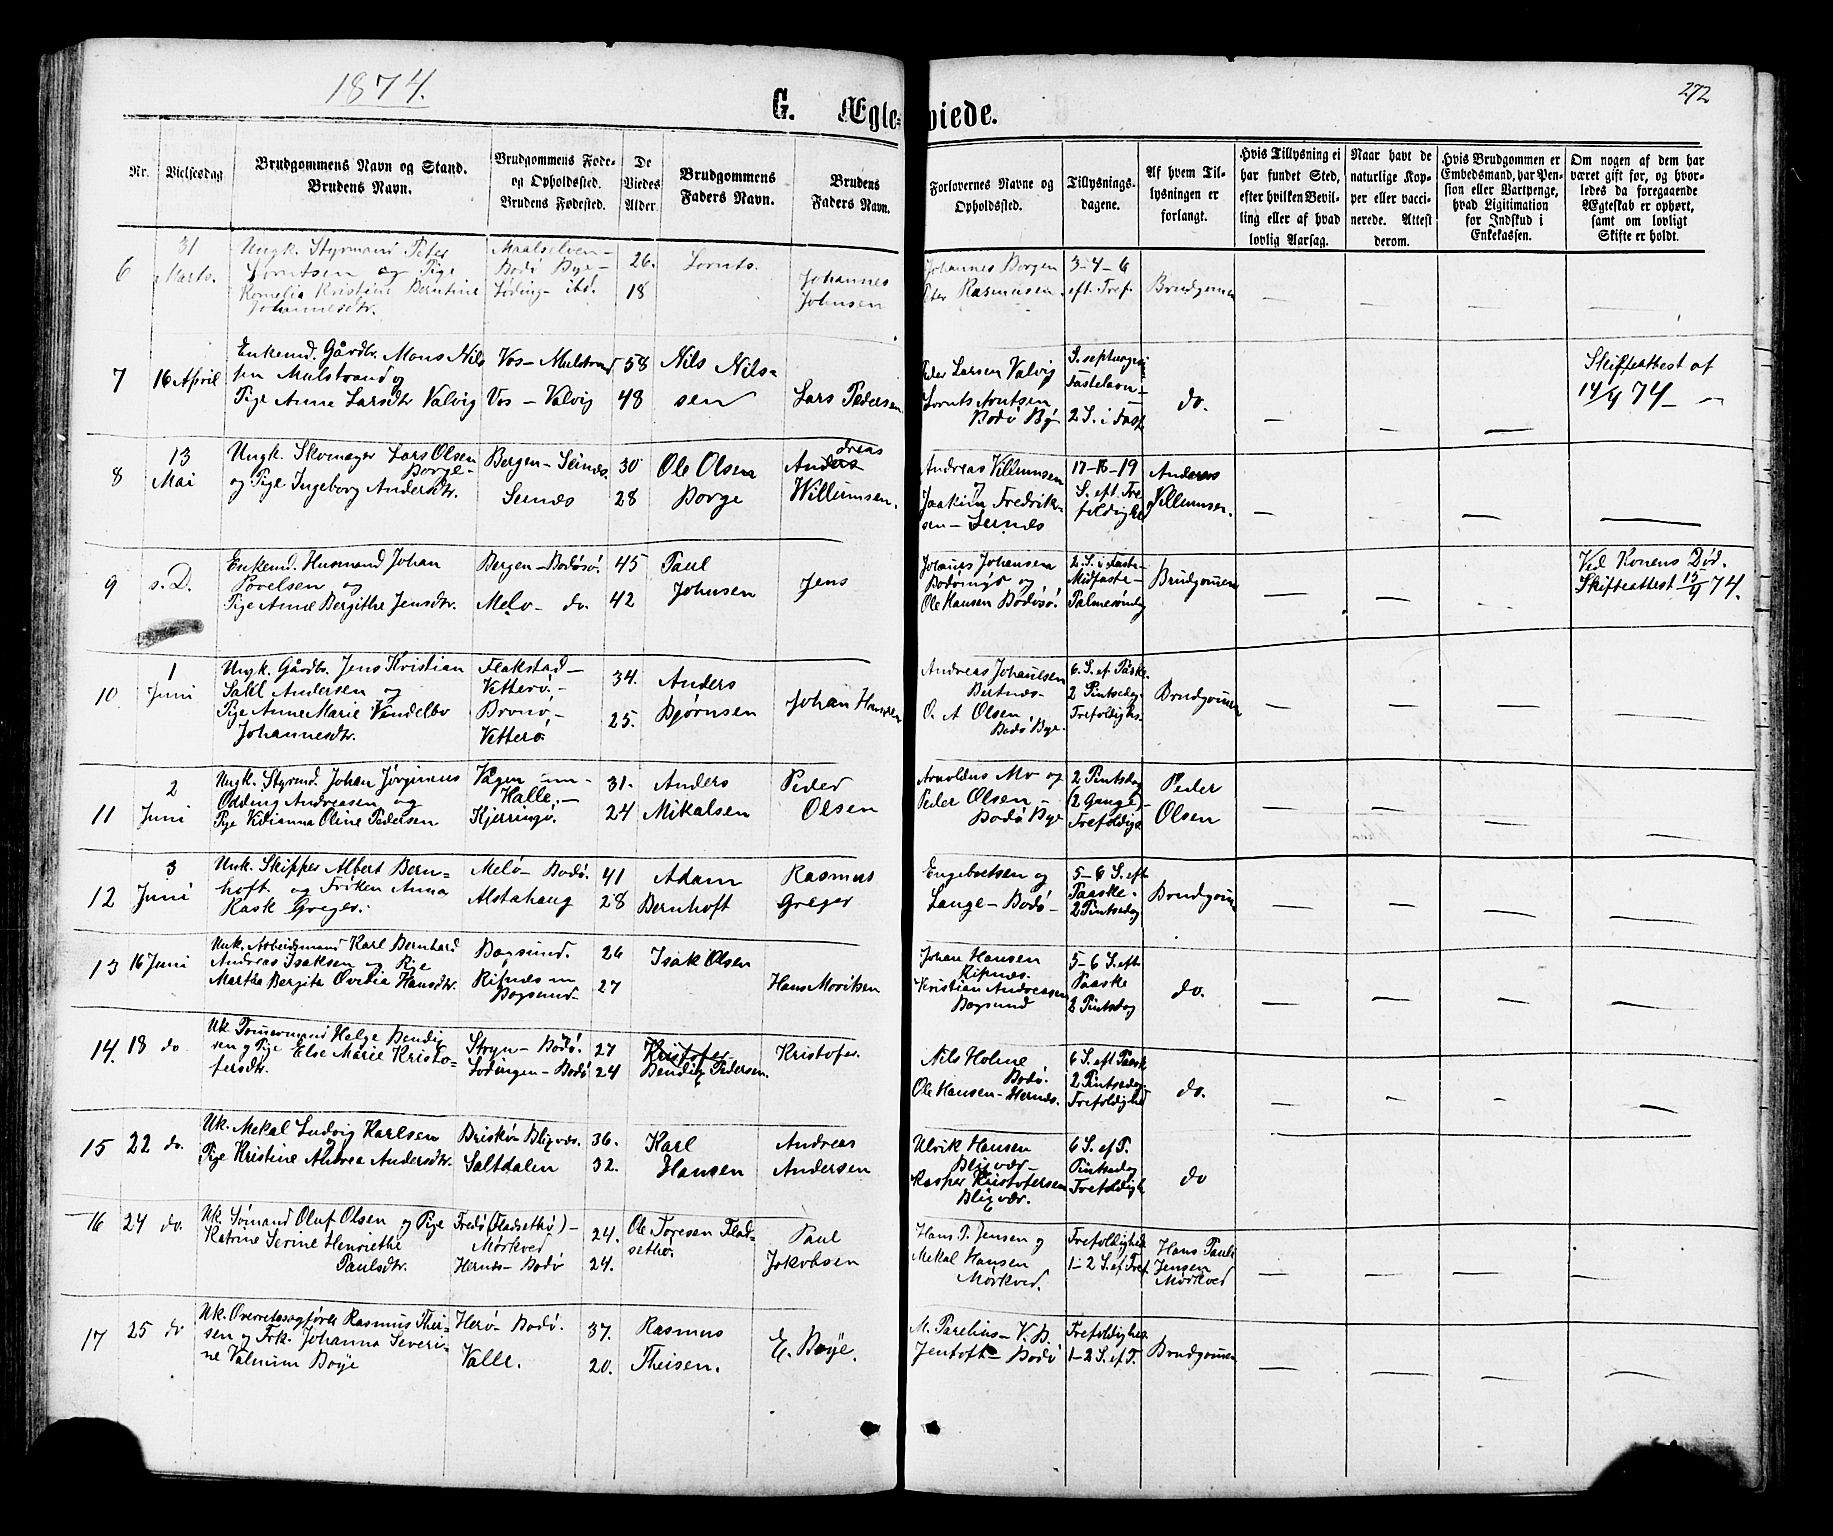 1874.
272
G. Ægteviede.
Nr.
Vielsesdag
Brudgommens Navn og Stand.
Brudens Navn.
Brudgommens Føde-
og Opholdssted.
Brudens Fødested.
De
Viedes
Alder.
Brudgommens
Faders Navn.
Brudens
Faders Navn.
Forlovernes Navne og
Opholdssted.
Tillysnings-
dagene.
Af hvem Til-
lysningen er
forlangt.
Hvis Tillysning ei
har fundet Sted,
efter hvilken Bevil-
ling eller af hvad
lovlig Aarsag.
Naar havt de
naturlige Kop-
per eller vacci-
nerede. Attest
derom.
Hvis Brudgommen er
Embedsmand, har Pen-
sion eller Vartpenge,
hvad Legitimation
for Indskud i
Enkekassen.
Om nogen af dem har
været gift før, og hvor-
ledes da foregaaende
Ægteskab er ophørt,
samt om lovligt
Skifte er holdt.
6
31
Marts.
Ungk. Styrmand Peter
Lorntsen og Pige
Kornelia Kristine Berntine
Johannesdtr.
Maalselven-
Bodø Bye-
Løding- ibd.
26.
18
Lornts.
Johannes
Johnsen
Johannes Borgen
Peter Rasmussen.
3-4-6
eft. Tref.
Brudgomen
7
16 April
Enkemd. Gårdbr. Mons Nils
sen Mulstrand og
Pige Anne Larsdtr Valvig
Vos- Mulstrand
Vos - Valvig
58
48
Nils Nils-
sen
Lars Pedersen
Peder Larsen Valvig
Lornts Arntsen
Bodø By
S. septuages
Fastelavn-
2 S. i Fast
do.
Skifteattest af
14/4 74-
8
13
Mai
Ungk. Skomager Lars Olsen
Borge-
og Pige Ingeborg Andersdtr.
Bergen- Seines.
Seines
30
28
Ole Olsen
Borge
Andreas
Willumsen.
Andreas Villumsen
og
Joakim Fredrik-
sen- Seines
17-18-19
S. eft. Tre
foldighe
Anderes
Villumsen.
9
s. D.
Enkemd. Husmand Johan
Povelsen og
Pige Anne Bergithe Jensdtr.
Bergen- Bodøsø.
Melø- do.
45
42
Paul
Johnsen
Jens
Johannes Johansen
og
Ole Hansen Bodøsø.
2. S. i Faste-
Midfaste-
Palmesøndag
Brudgomen
Ved Konens Død.
Skifteattest 15/4 74.
10
1
Juni
Ungk. Gårdbr. Jens Kristian
Andersen og
Pige Anne Marie Vendelbo
Johannesdtr.
Flakstad-
Vetterø.-
Brønø-
Vetterø.
34.
25.
Anders
Bjørnsen
Johan Hansen
Andreas Johansen
Bertnes-
O. A Olsen
Bodø Bye.
6. S. ef. Påske
2 Pintsedag
Trefoldighs.
Brudgomen
11
2
Juni
Ungk. Styrmd. Johan Jørginus
Odding Andreasen og
Pige Kitianna Oline Pedersen
Vågen un-
Halle.-
Kjerringø.
31.
24
Anders
Mikalsen
Peder
Olsen
Arnoldus Mo og
Peder Olsen-
Bodø Bye
2 Pintsdag
(2 Gange)-
Trefoldigh
Peder
Olsen
12
3
Juni
Unk. Skipper Albert Bern-
hoft og Frøken Anna
Rask Greger.
Melø- Bodø.
Alstahaug
41
28
Adam
Bernhoft
Rasmus
Greger
Engebretsen og
Lange- Bodø-
5-6 S. eft
Paaske.
2 Pintsedag
Brudgomen
13
16 Juni
Unk. Arbeidsmand Karl Bernhard
Andreas Isaksen og Pige
Marthe Bergita Ovidia Hansdtr.
Bogsund.
Ripnes un
Bogsund-
26
27
Isak Olsen
Hans Moritsen
Johan Hansen
Ripnes.
Kristian Andreasen
Bogsund
5-6 S. eft.
Paaske
2 Pintsdag
do.
14.
18 do
Uk. Tømermand Helge Bendig
sen og Pige Else Marie Kristo-
fersdtr.
Stryn- Bodø.
Lødingen- Bodø
27
24
Kristofer
Bendig Pedersen.
Kristofer
Nils Holme
Bodø.
Ole Hansen- Hernes.
6 S. eft Paask
2 Pintsedag-
Trefoldighed
do.
15
22 do.
Uk. Mekal Ludvig Karlsen
og
Pige Kristine Andrea Andersdtr.
Briskøn Bligvær.
Saltdalen
36.
32.
Karl
Hansen
Andreas
Andersen
Ulrik Hansen
Bligvær-
Kasper Kristofersen
Bligvær.
6 S. ef P.
Pintsedag
Trefoldigh
do
16
24 do.
Uk. Sømand Oluf Olsen og Pige
Katrine Serine Henriethe
Paulsdtr.
Fredø (Fladsethø)-
Mørkved
Hernes- Bodø
24.
24.
Ole Toresen Flad-
sethø.
Paul
Jakobsen
Hans P. Jensen og
Mekal Hansen
Mørkved.
Trefoldighed
1-2 S. ef Tref.
Hans Paul
Jensen
Mørkved
17
25 do
Uk. Overretssagfører Rasmus Thei-
sen og Frk. Johanna Severi-
ne Bøye
Herø- Bodø.
Valle.
37.
20.
Rasmus
Theisen.
E. Bøye.
M. Parelius- V. B.
Jentoft- Bodø
Trefoldighed
1-2 S. ef T.
Brudgomen